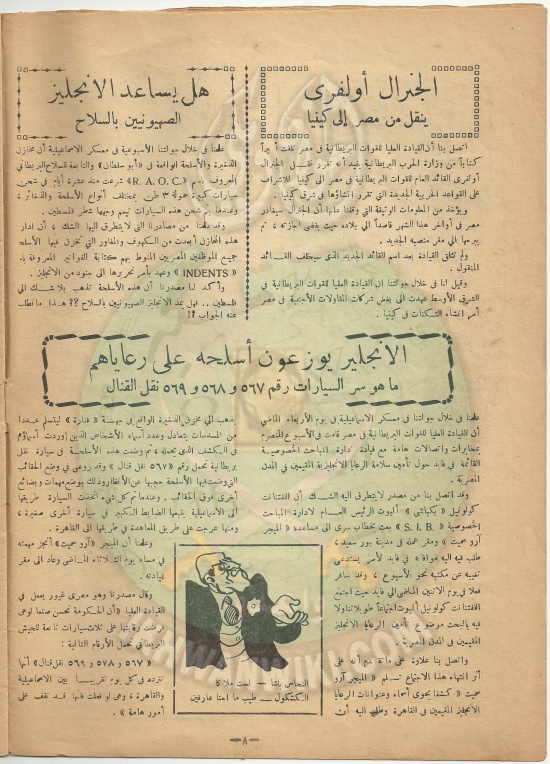 الجنرال أولفرى
ينقل من مصر إلى كينيا
اتصل بنا أن القيادة العليا للقوات البريطانية فى مصر تلقت أخيراً
كتاباً من وزارة الحرب البريطانية يفيد أنه تقرر نقل الجنرال
أولفرى القائد العام للقوات البريطانية فى مصر الى كينيا للاشراف
على القواعد الحربية الجديدة التى تقرر انشاؤها فى شرق كينيا .
ويؤخذ من المعلومات الوثيقة التى وقفنا عليها أن الجنرال سيغادر
مصر فى أواخر هذا الشهر قاصداً الى بلاده حيث يقضى أجازته ، ثم
يبرحها الى مقر منصبه الجديد .
ولم تتلق القيادة بعد اسم القائد الجديد الذى سيخلف القائد
المنقول .
وقيل لنا فى خلال جولتنا ان القيادة العليا للقوات البريطانية فى
الشرق الأوسط عهدت الى بعض شركات المقاولات الأجنبية فى مصر
أمر انشاء الثكنات فى كينيا .
هل يساعد الانجليز
الصهيونيين بالسلاح
علمنا فى خلال جولتنا الأسبوعية فى معسكر الاسماعيلية أن مخازن
الذخيرة والأسلحة الواقعة فى « أبو سلطان » والتابعة للسلاح البريطانى
المعروف باسم « R.A.O.C. » شرعت منذ عشرة أيام فى شحن
سيارات كبيرة حمولة ٣ طن بمختلف أنواع الأسلحة والذخائر ،
وعندما يتم شحن هذه السيارات تيمم وجهها شطر فلسطين .
وقد علمنا من مصادرنا التى لا يتطرق اليها الشك ، أن ادارة
هذه المخازن أبعدت من السكهوف والمغاور التى تخزن فيها الأسلحة
جميع الموظفين المصريين المنوط بهم كتابة الفواتير المعروفة باسم
« INDENTS » وعهد بأمر تحريرها الى جنود من الانجليز .
وأكد لنا مصدرنا أن هذه الأسلحة تذهب بلا شك الى
فلسطين .. فهل يمد الانجليز الصهيونيين بالسلاح ؟؟ هذا ما نطلب
عنه الجواب ؟!
الانجليز يوزعون أسلحه على رعاياهم
ما هو سر السيارات رقم ٥٦٧ و ٥٦٨ و ٥٦٩ نقل القنال
علمنا فى خلال جولتنا فى معسكر الاسماعيلية فى يوم الأربعاء الماضى
أن القيادة العليا للقوات البريطانية فى مصر قامت فى الأسبوع المنصرم
بمخابرات واتصالات هامة مع قيادة ادارة المباحث الخصوصية
القائمة فى فايد حول تأمين سلامة الرعايا الانجليزية المقيمين فى المدن
المصرية .
وقد اتصل بنا من مصدر لا يتطرق اليه الشك أن اللفتنانت
كولونيل « بكباشى » أليوت الرئيس العام لادارة المباحث
الخصوصية « S. I. B. » بعث بخطاب سرى الى مساعده « الميجر
آرو سميث » ومقر عمله فى مدينة بور سعيد ،
طلب فيه اليه موافاته فى فايد لأمر يستدعى
تغيبه عن مكتبه نحو الأسبوع ، وقد سافر
فعلا فى يوم الاثنين الماضى الى فايد حيث اجتمع
اللفتنانت كولونيل أليوت اجتماعاً طويلا تناولا
فيه بالبحث موضوع تأمين الرعايا الانجليز
المقيمين فى المدن المصرية .
واتصل بنا علاوة على ما تقدم أنه على
أثر انتهاء هذا الاجتماع تسلم « الميجر آرو
سميث » كشفا يحوى أسماء وعنوانات الرعايا
الانجليز المقيمين فى القاهرة وطلب اليه أن
يذهب الى مخازن الذخيرة الواقع فى جهة « فنارة » ليتسلم عدداً
من المسدسات يتعادل وعدد أسماء الأشخاص الذين أوردت أسماؤهم
فى الكشف الذى يحمله ، ثم وضعت هذه الأسلحة فى سيارة نقل
بريطانية تحمل رقم « ٥٦٧ نقل قنال » وقد روعى فى وضع الحقائب
التى وضعت فيها الأسلحة حجبها عن الأنظار وذلك بوضع مهمات وبضائع
أخرى فوق الحقائب . وعندما تم كل شىء اتخذت السيارة طريقها
الى الاسماعيلية يتبعها الضابط الكبير فى سيارة أخرى صغيرة ،
ومنها عرجت على طريق المعاهدة فى طريقها الى القاهرة .
وعلمنا أن الميجر « آرو سميث » أنجز مهمته
فى مساء يوم الثلاثاء الماضى وعاد الى مقر
قيادته .
وقال مصدرنا وهو مصرى غيور يعمل فى
القيادة العليا « أن الحكومة تحسن صنعا لو هى
فرضت رقابتها على ثلاث سيارات تابعة للجيش
البريطانى تحمل الأرقام التالية :
« ٥٦٧ و ٥٧٨ و ٥٦٩ نقل قنال » أنها
تتردد فى كل يوم تقريبا بين الاسماعيلية
والقاهرة ، وهى لو فعلت فانها قد تقف على
أمور هامة » .
النحاس باشا – احنا ملاكا
الكشكول – طيب ما احنا عارفين
— ٨ —
IKHWANWIKI.COM